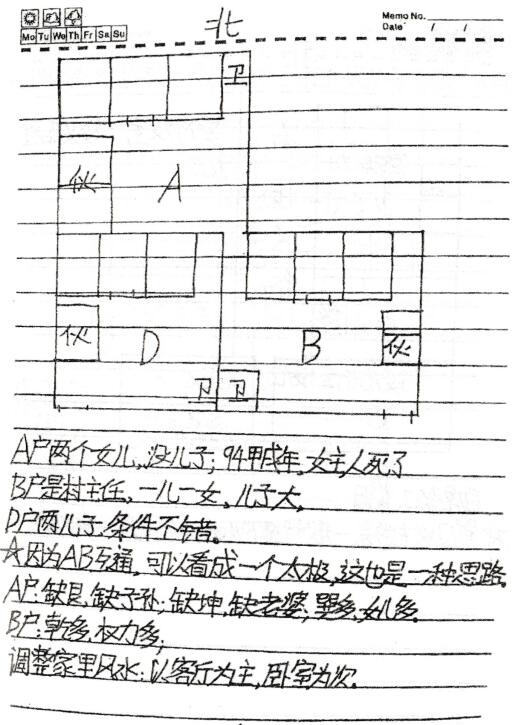 北
Memo No.
Mo Tu We Th Fr Sa Su
Date / /
卫
伙
A
伙
D
B
伙
卫 卫
A户两个女儿,没儿子;94甲戌年,女主人死了
B户是村主任,一儿一女,儿子大,
D户两儿子,条件不错。
☆因为AB互通,可以看成一个太极,这也是一种思路。
A户:缺艮,缺子孙;缺坤,缺老婆,巽多,女儿多.
B户:乾多,权力多;
调整家里风水:以客厅为主,卧室为次.